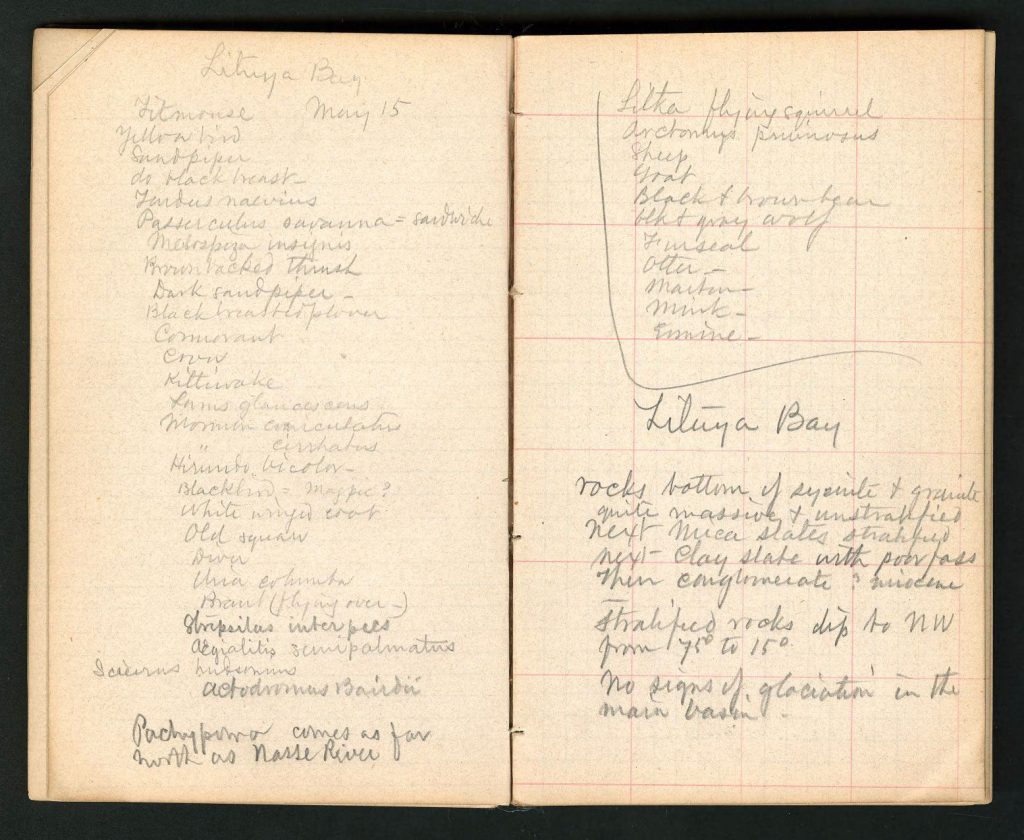 Lituya Bay
Titmouse May 15
Yellow bird
Sandpiper
do black breast -
Turdus naevius
Passerculus savanna = sandwiche
Melospiza insignis
Brown backed thrush
Dark sandpiper -
Black breasted plover
Cormorant
Crow
Kittiwake
Larus glaucescens
Mormon corniculatus
" cirrhatus
Hirundo bicolor -
Blackbird = Magpie?
White winged coot
Old squaw
Diver
Uria columba
Brant (flying over -)
Strepsilas interpres
Aegialitis semipalmatus
Sciurus hudsonius
Actodromas Bairdii
comes as far
north as Nasse River
Sitka flying squirrel
Arctomys pruinosus
Sheep
Goat
Black & brown bear
blk & gray wolf
Fur seal
Otter -
Marten -
Mink -
Ermine -
Lituya Bay
rocks bottom of syenite & granite
quite massive & unstratified
next Mica slates stratified
next - Clay slate with poor foss
Then conglomerate ? miocene
Stratified rocks dip to NW
from 75° to 15°
No signs of glaciation in the
main basin -